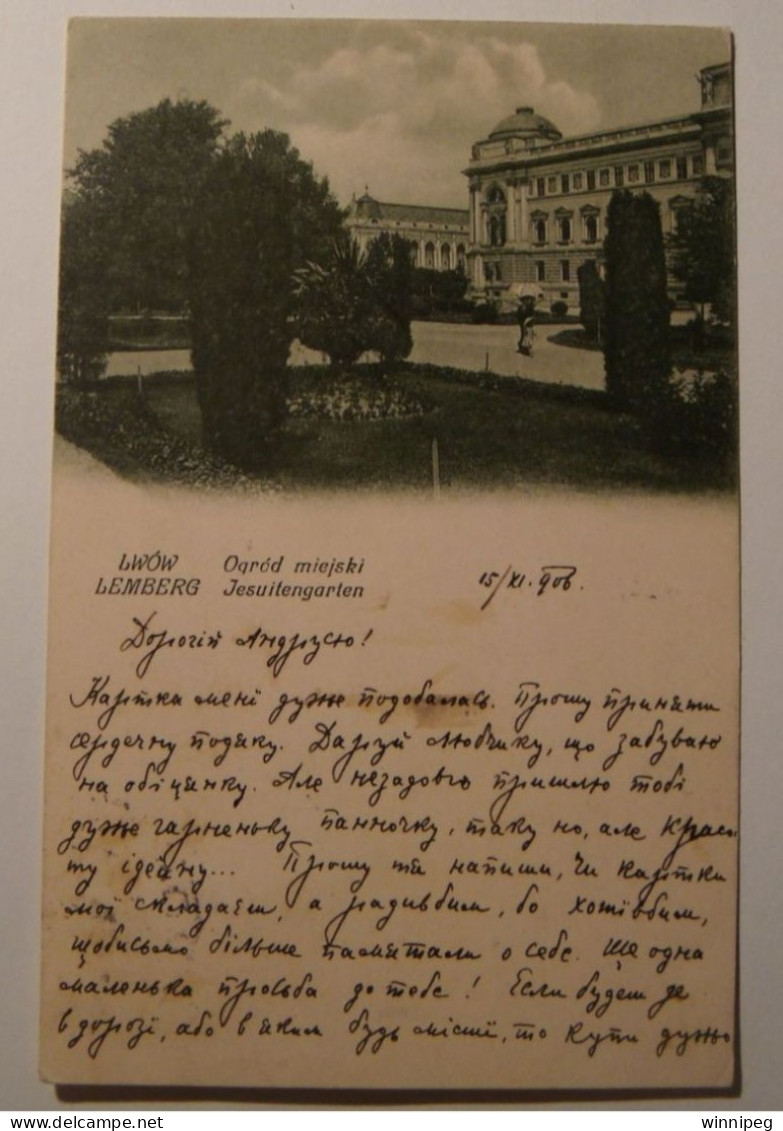 LWÓW Ogród miejski
LEMBERG Jesuitengarten
15/XI. 906.
Дорогій Андрусю!
Картка мені дуже подобалась. Прошу приняти
сердечну подяку. Даруй любчику, що забуваю
на обіцянку. Але незадовго пришлю тобі
дуже гарненьку панночку, таку но, але краси
ту ідейну... Прошу тя напиши, чи картки
мої складаєш, а радивбим, бо хотівбим,
щобисьмо більше памятали о себе. Ще одна
маленька просьба до тебе! Если будеш де
в дорозі, або в яким будь місті, то купи дуже
delcampe.net
winnipeg